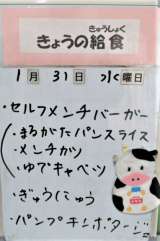 きゅうしょく
きょうの給食
1月31日水曜日
・セルフメンチバーガー
・まるがたパンスライス
・メンチカツ
・ゆでキャベツ
・ぎゅうにゅう
・パンプキンポタージュ